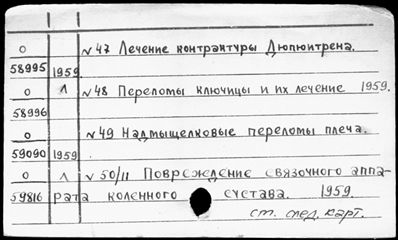 О №47 Лечение контрактуры Дюпюитрена.
58995 1959
О 1 №48 Переломы ключицы и их лечение 1959.
58996
О №49 Надмыщелковые переломы плеча.
59090 1959
О 1 №50/II Повреждение связочного аппа-
59816 рата коленного сустава. 1959.
ст. след. карт.